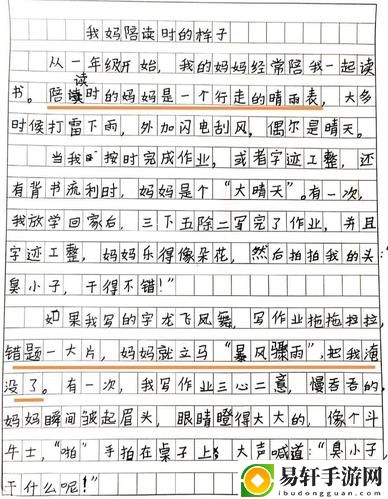 我妈陪读时的样子
从一年级开始，我的妈妈经常陪我一起读
书。陪读时的妈妈是一个行走的晴雨表，大多
时候打雷下雨，外加闪电刮风，偶尔是晴天。
当我时按时完成作业，或者字迹工整，还
有背书流利时，妈妈是个“大晴天”。有一次，
我放学回家后，三下五除二写完了作业，并且
字迹工整，妈妈乐得像朵花，然后拍拍我的头：“
臭小子，干得不错！”
如果我写的字龙飞凤舞，写作业拖拖拉拉，
错题一大片，妈妈就立马“暴风骤雨”，把我淹
没了。有一次，我写作业三心二意，慢吞吞的，
妈妈瞬间皱起眉头，眼睛瞪得大大的，像个斗
牛士，“啪”手拍在桌子上，大声喊道：“臭小子，
干什么呢！”
易轩手游网
ibudongguan.com